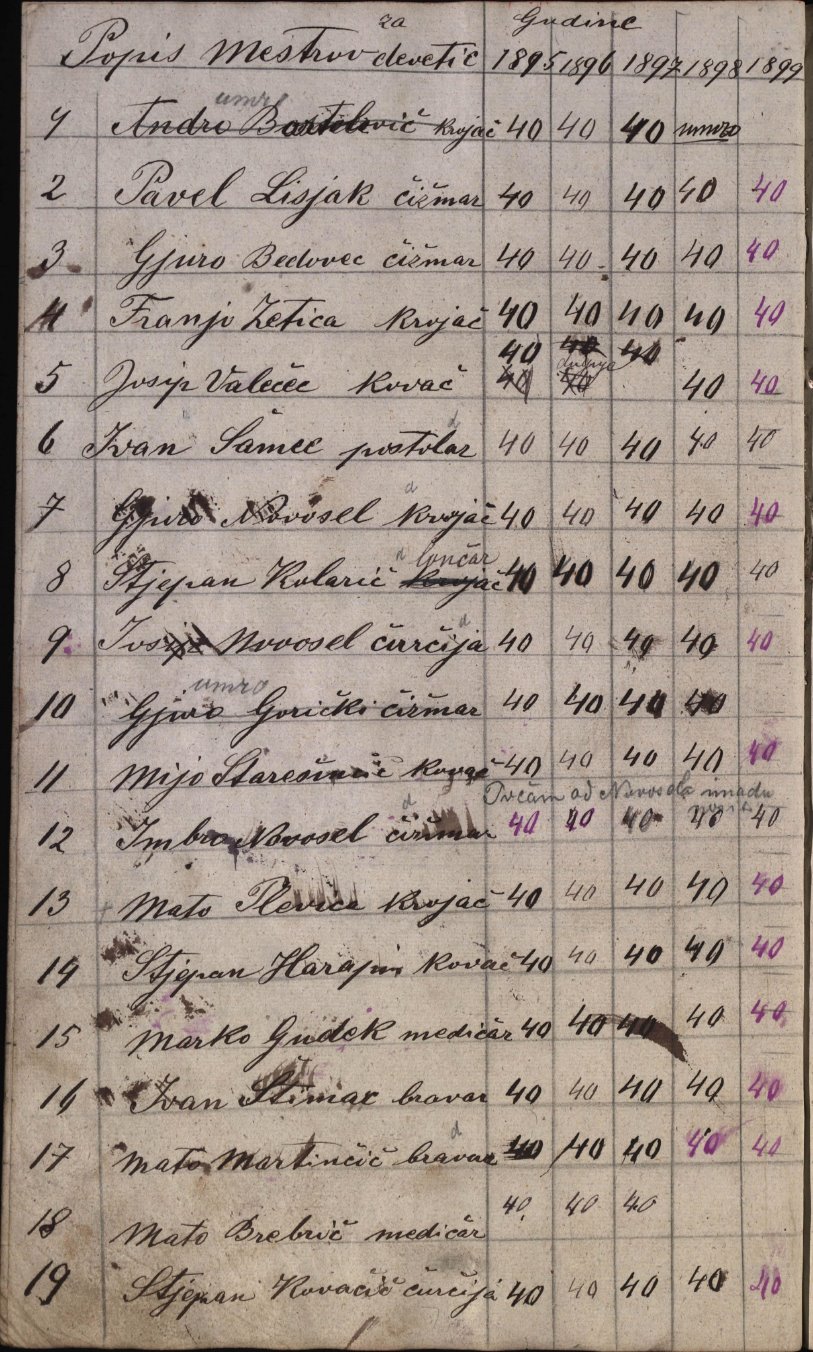 za Godine
Popis Mestrov devetic 1895 1896 1897 1898 1899
umro
1 Andro krojač 40 40 40 umro
2 Pavel Lisjak čižmar 40 40 40 40 40
3 Gjuro Bedovec čižmar 40 40 40 40 40
4 Franjo Zetica krojač 40 40 40 40 40
40 40 40
5 Josip Valečec kovač 40 40 40 40
d
6 Ivan Šamec postolar 40 40 40 40 40
d
7 Gjuro Novosel krojač 40 40 40 40 40
d lončar
8 Stjepan Kolarić krojač 40 40 40 40 40
d
9 Josip Novosel čurčija 40 40 40 40 40
umro
10 Gjuro Gorički čižmar 40 40 40 40
11 Mijo Starešinić kovač 40 40 40 40 40
od Novosela imadu
d
12 Imbro Novosel čižmar 40 40 40 40 40
13 Mato Plevica krojač 40 40 40 40 40
14 Stjepan Harapin kovač 40 40 40 40 40
15 Marko Gudek medičar 40 40 40 40 40
16 Ivan Štimac bravar 40 40 40 40 40
d
17 Mato Martinčić bravar 40 40 40 40 40
18 Mato Brebrić medičar 40 40 40
19 Stjepan Kovačić čurčija 40 40 40 40 40